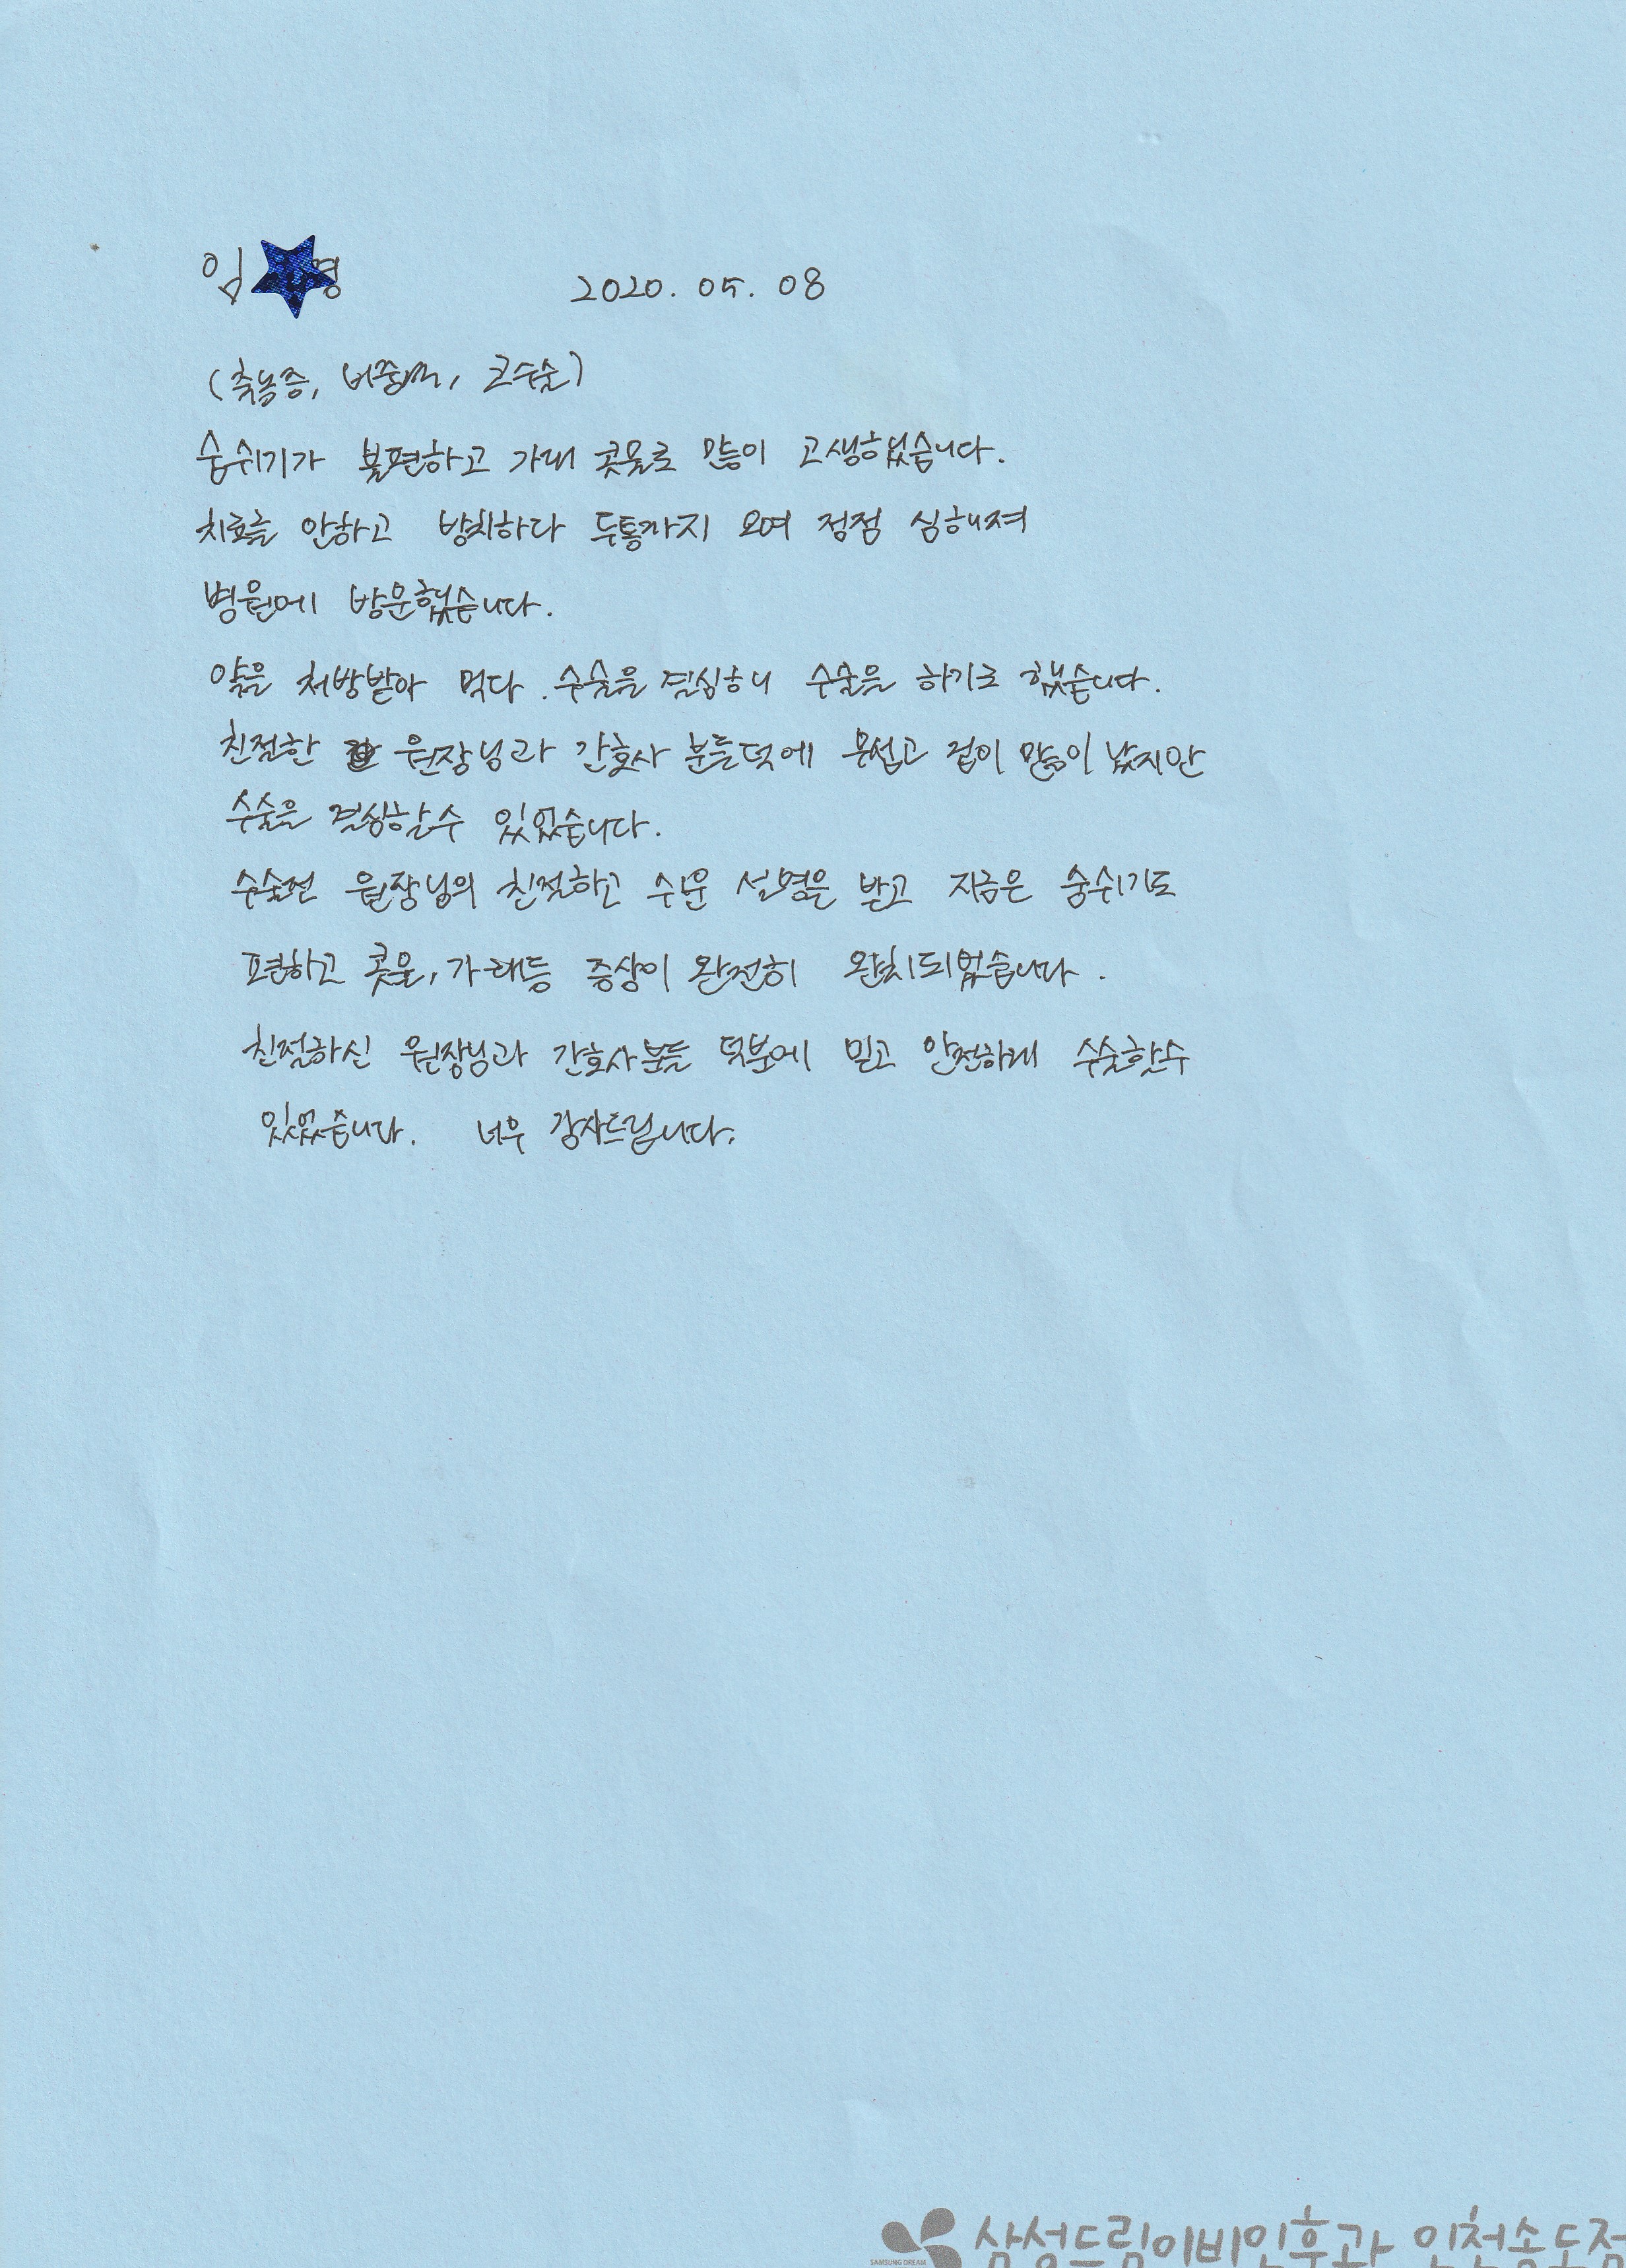 임 영 2020. 05. 08
(축농증, 비중격, 코수술)
숨쉬기가 불편하고 가래 콧물로 많이 고생했습니다.
치료를 안하고 방치하다 두통까지 오며 점점 심해져
병원에 방문했습니다.
약을 처방받아 먹다 수술을 결심하니 수술을 하기로 했습니다.
친절한 원장님과 간호사 분들덕에 무섭고 겁이 많이 났지만
수술을 결심할수 있었습니다.
수술전 원장님의 친절하고 쉬운 설명을 받고 지금은 숨쉬기도
편하고 콧물, 가래등 증상이 완전히 완치되었습니다.
친절하신 원장님과 간호사분들 덕분에 믿고 안전하게 수술할수
있었습니다. 너무 감사드립니다.
SAMSUNG DREAM 삼성드림이비인후과 인천송도점